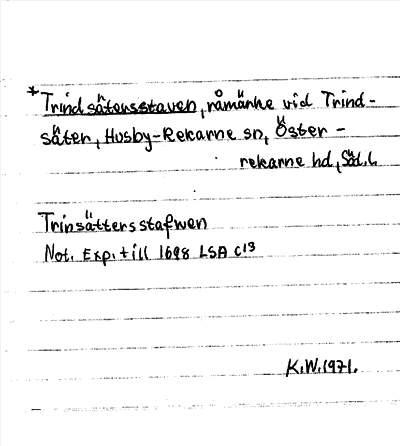 *Trindsätersstaven, råmärke vid Trind-
säter, Husby-Rekarne sn, Öster-
rekarne hd, Söd. l.
Trinsättersstafwen
Not. Exp. till 1698 LSA C13
K.W. 1971.